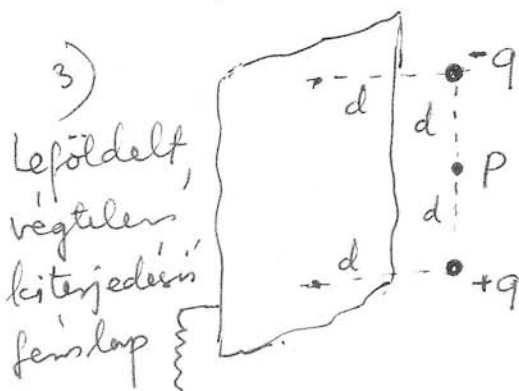 3)
Leföldelt,
végtelen
kiterjedésű
fémlap
d
d
d
d
-q
P
+q